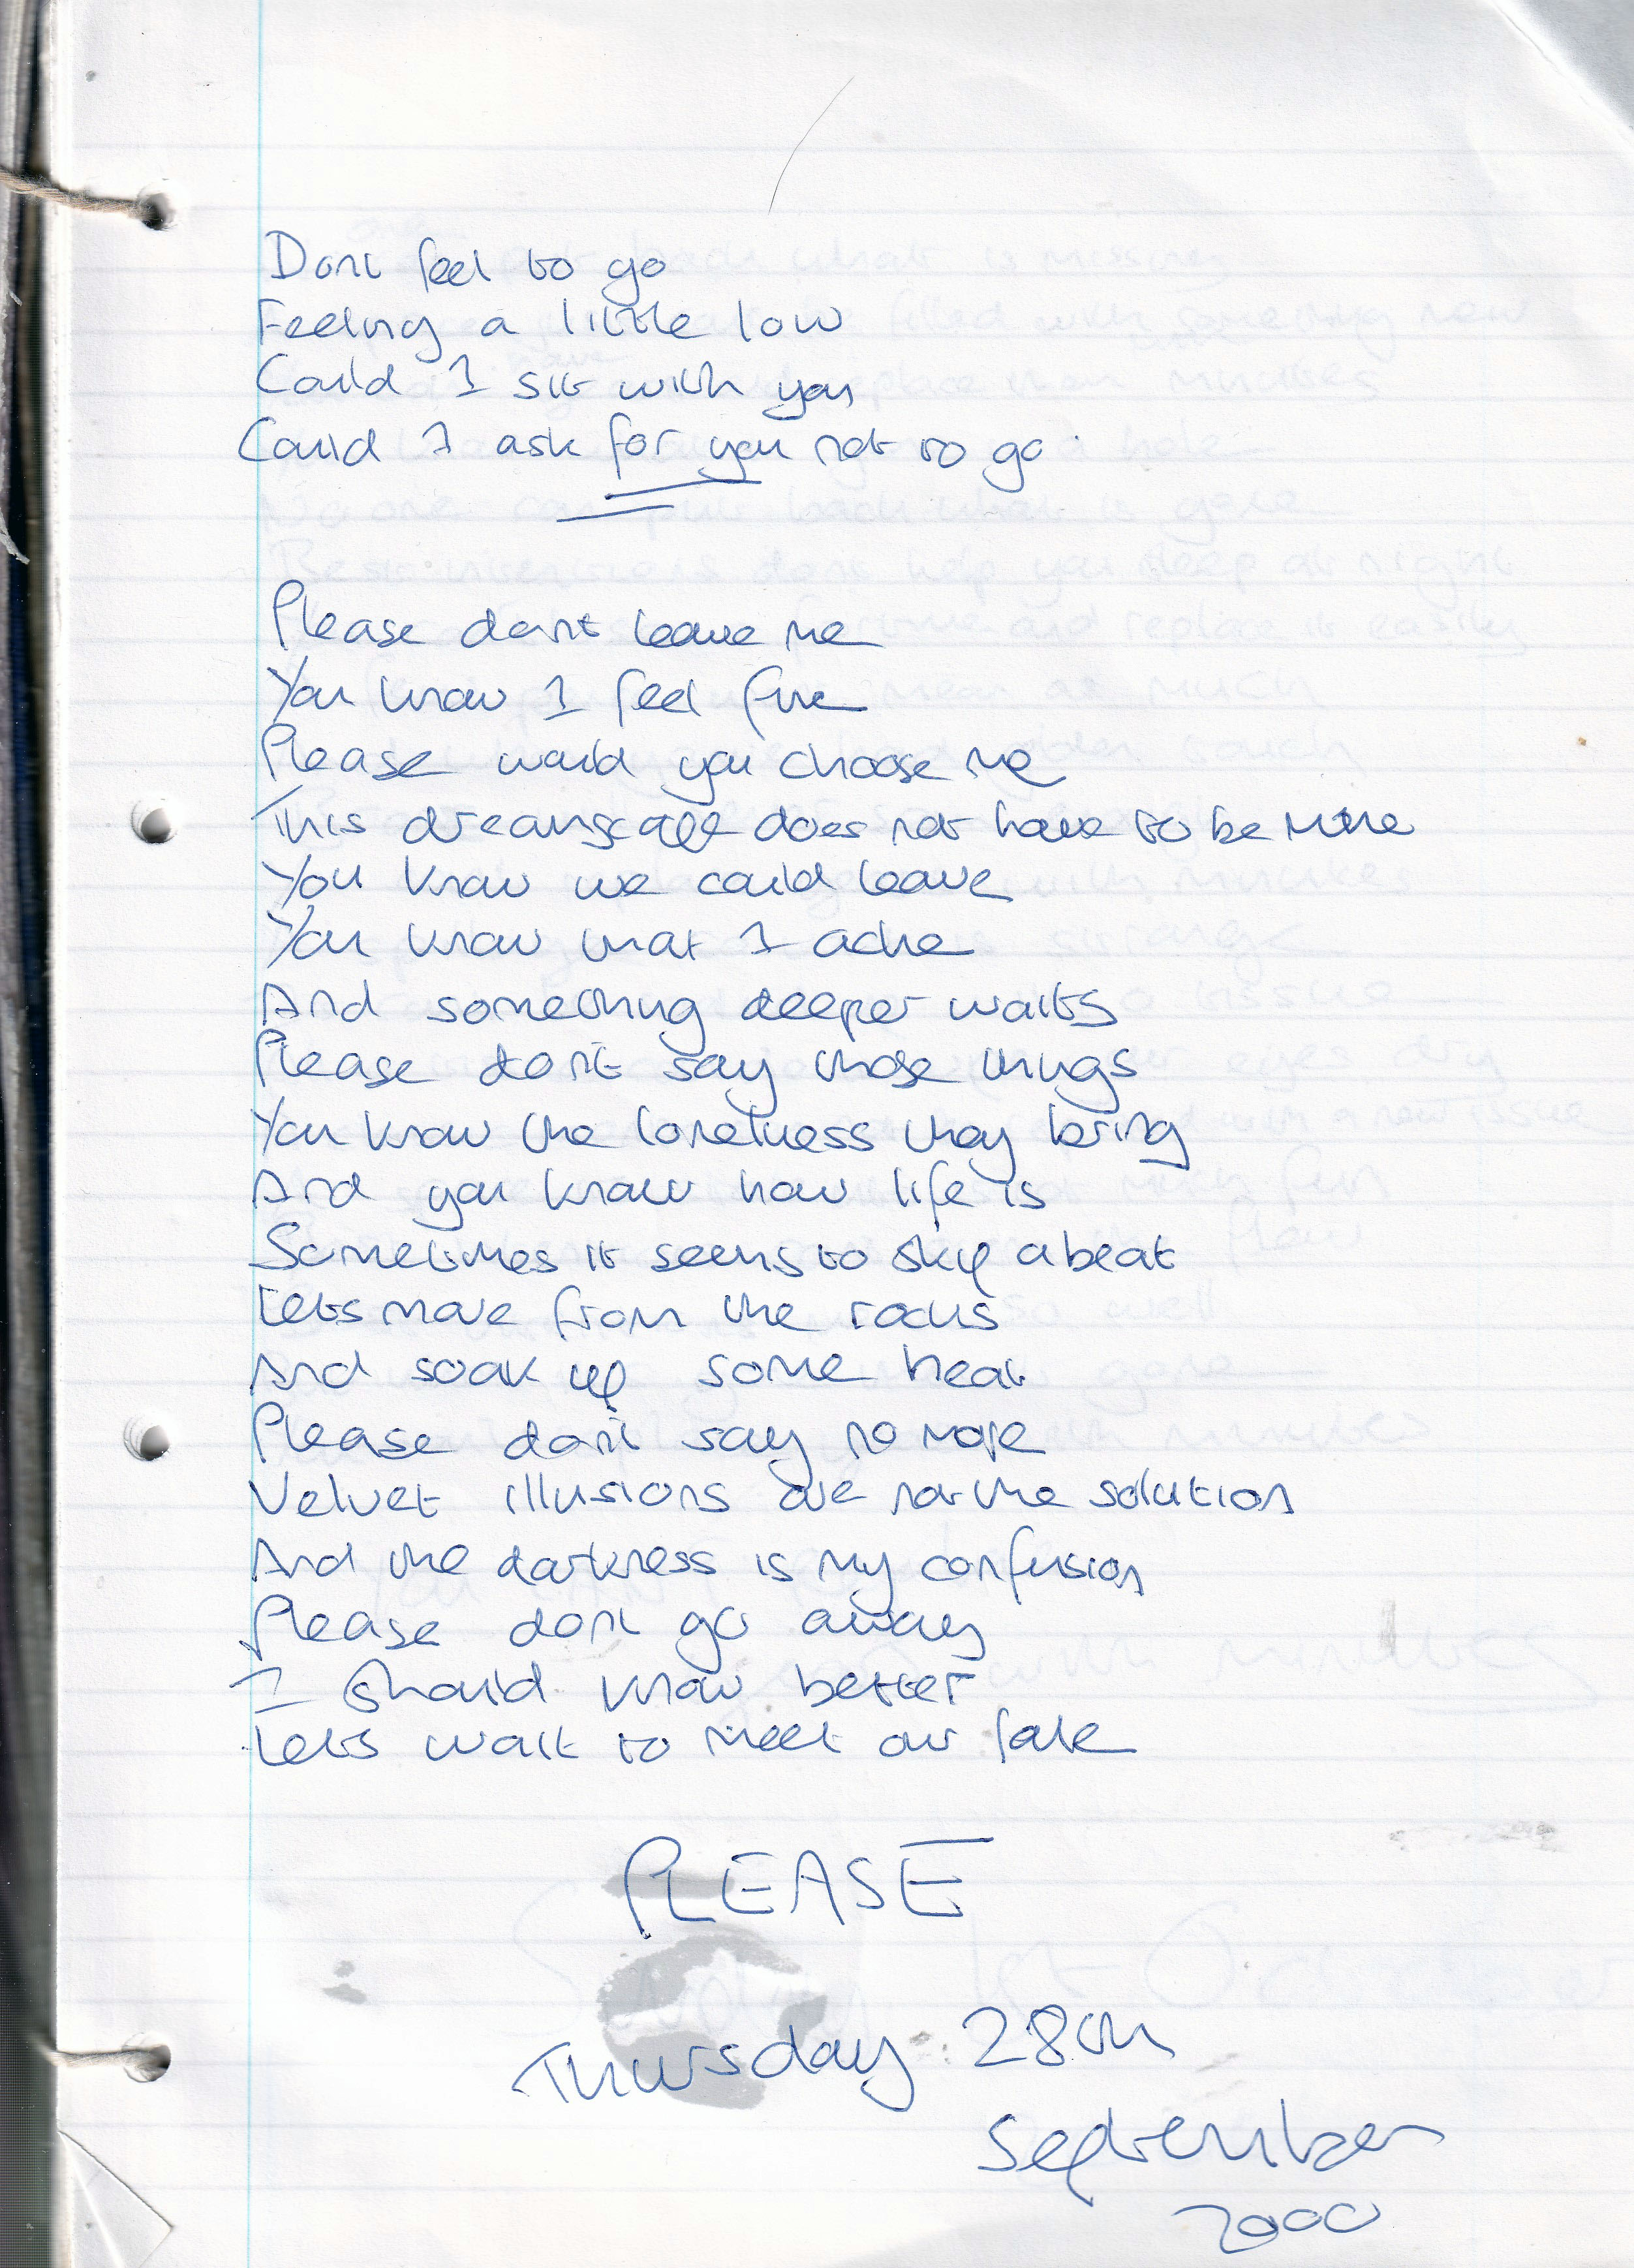 Dont feel to go
Feeling a little low
Could I sit with you
Could I ask for you not to go
Please dont leave me
You know I feel fine
Please would you choose me
This dreamscape does not have to be mine
You know we could leave
You know that I ache
And something deeper waits
Please dont say those things
You know the loneliness they bring
And you know how life is
Sometimes it seems to skip a beat
Lets move from the rocks
And soak up some heat
Please dont say no more
Velvet illusions are not the solution
And the darkness is my confusion
Please dont go away
I should know better
Lets wait to meet our fate
PLEASE
Thursday 28th
September
2000